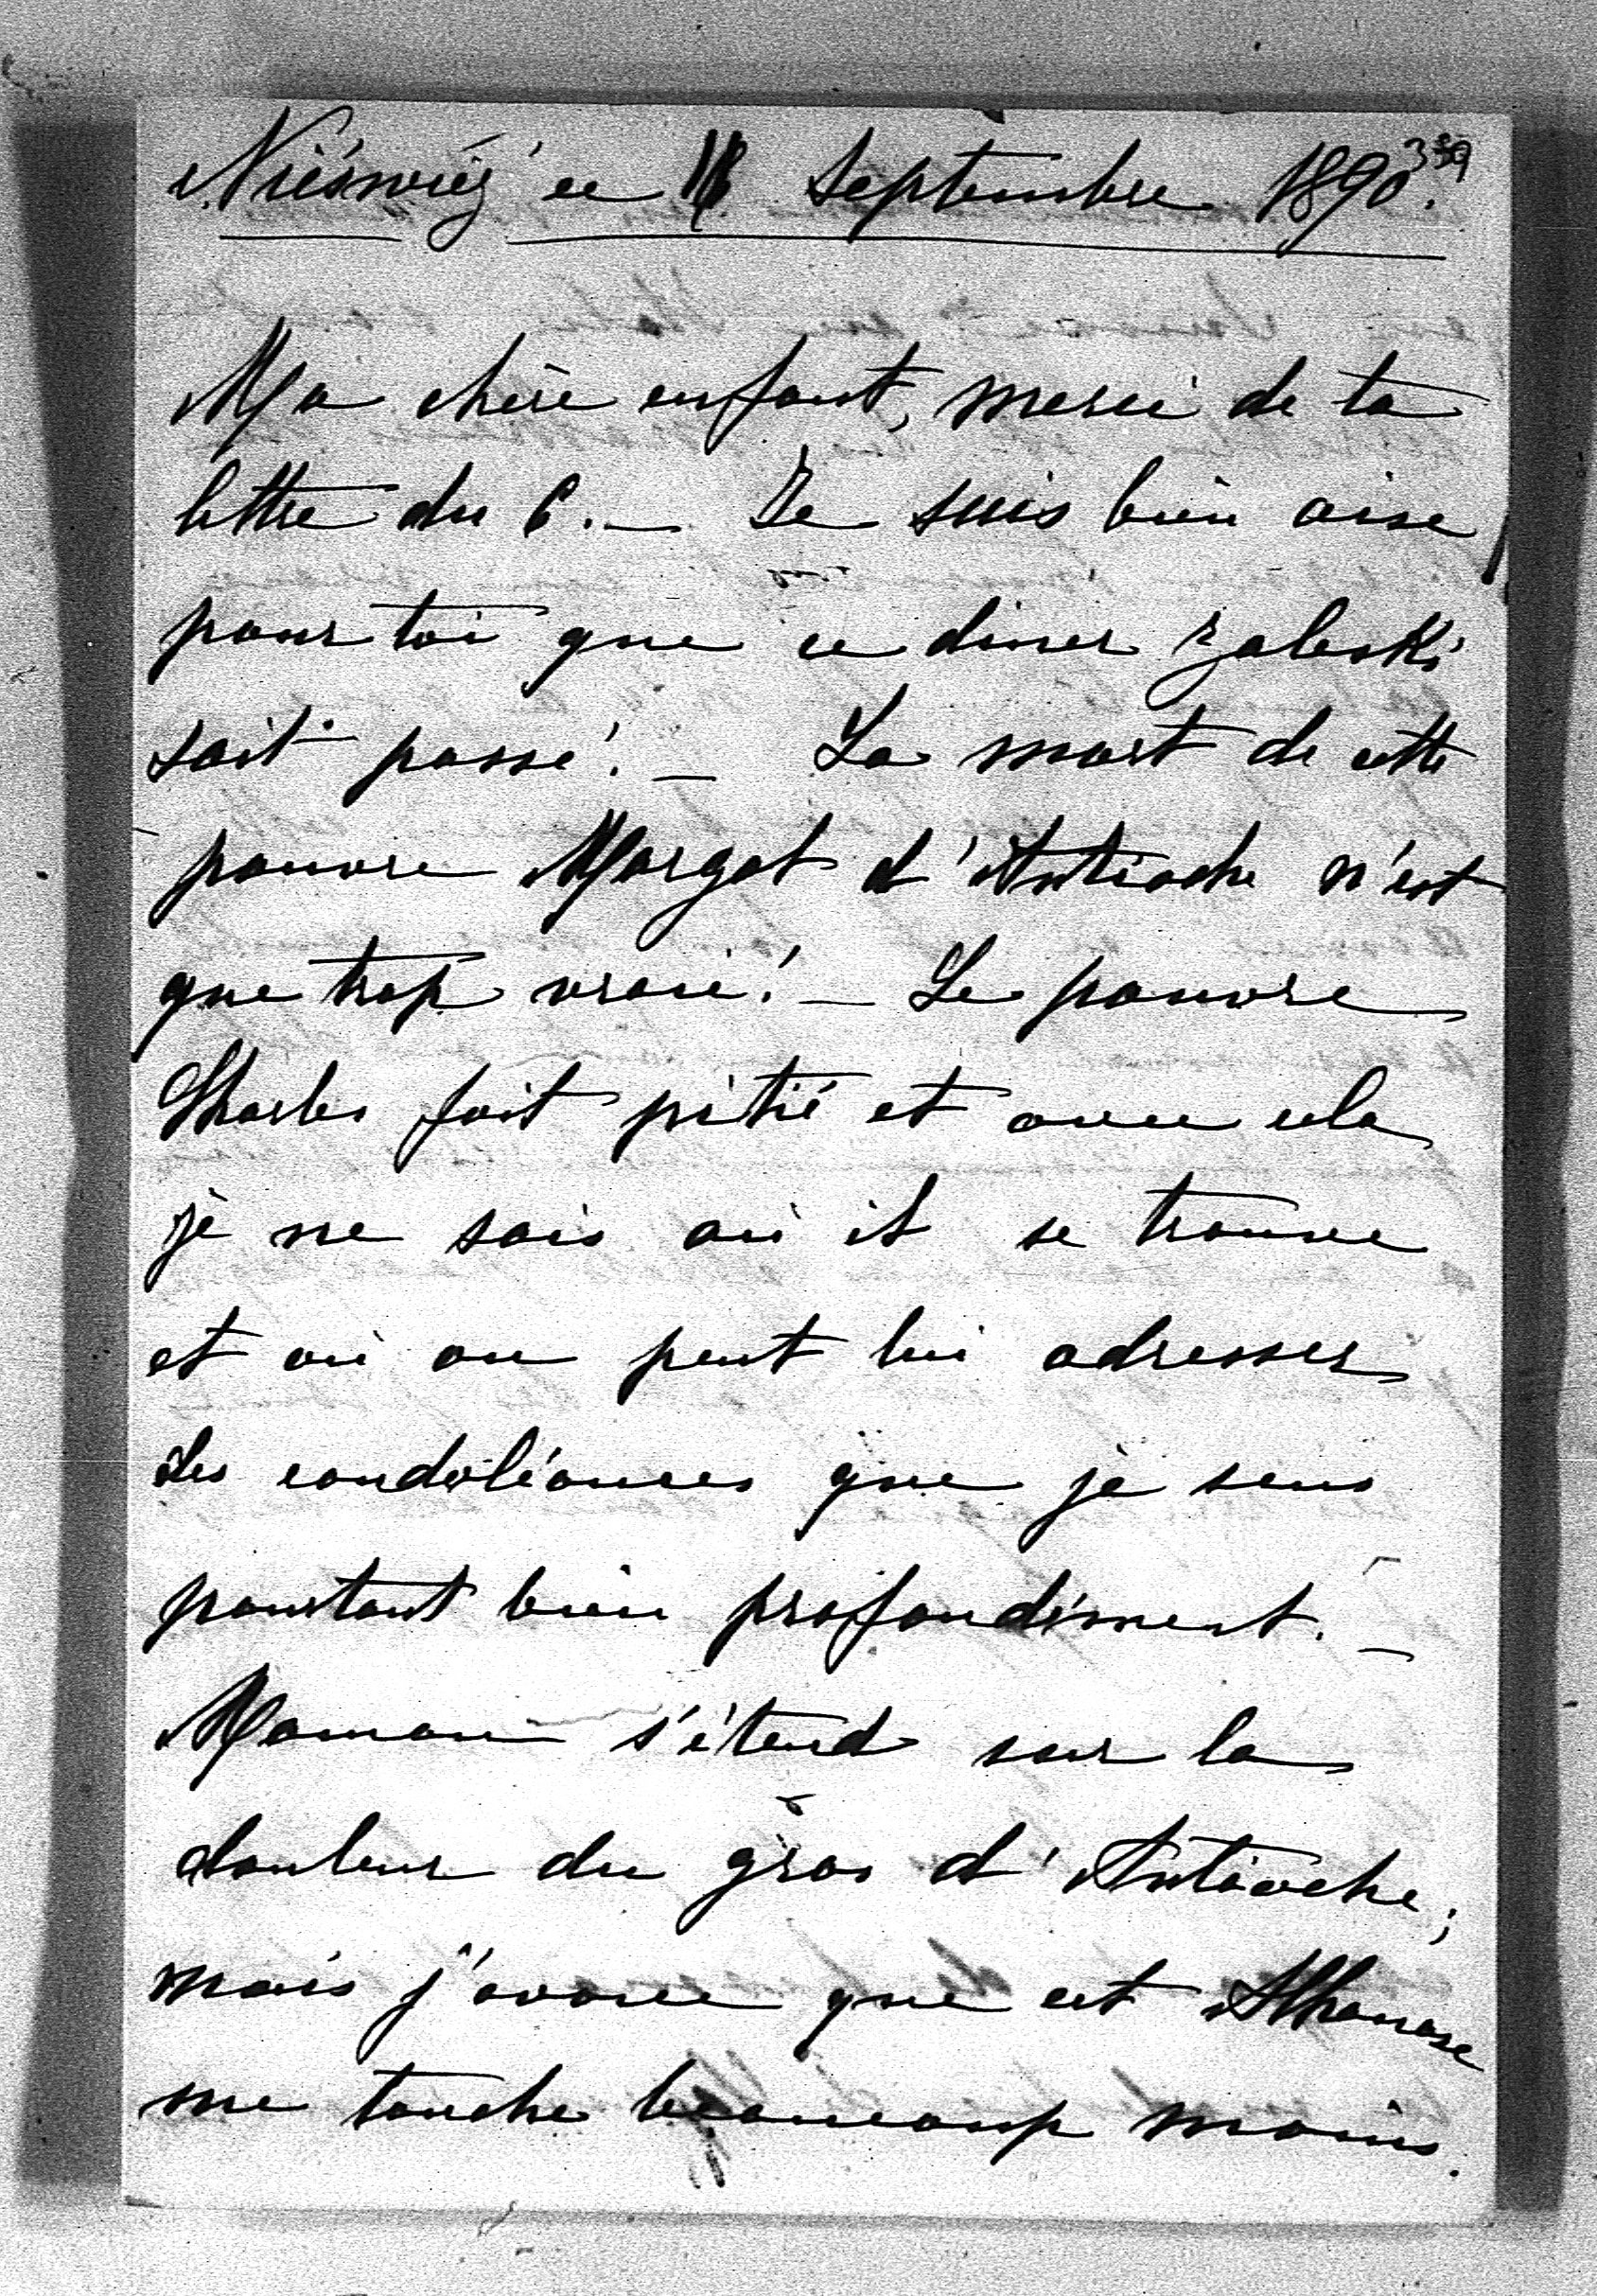 Nieśwież ce Septembre 1890.
Ma chère enfant, merci de ta
lettre du 6. — Je suis bien aise
pour toi que ce diner Zaleski
soit passé! — La mort de cette
pauvre Margot d'Antioche n'est
que trop vraie! — Le pauvre
Charles fait pitié et avec cela
je ne sais où il se trouve
et où on peut lui adresser
les condoléances que je sens
pourtant bien profondément. —
Maman s'étend sur la
douleur du gros d'Antioche;
mais j'avoue que cet Athanase
me touche beaucoup moins.